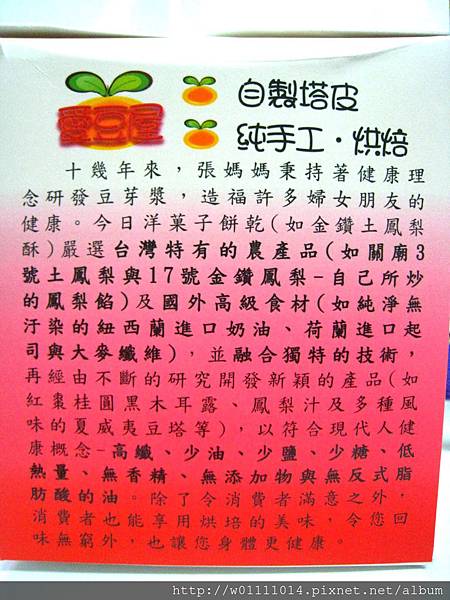 愛豆屋
自製塔皮
純手工・烘焙
十幾年來，張媽媽秉持著健康理
念研發豆芽漿，造福許多婦女朋友的
健康。今日洋菓子餅乾(如金鑽土鳳梨
酥)嚴選台灣特有的農產品(如關廟3
號土鳳梨與17號金鑽鳳梨-自己所炒
的鳳梨餡)及國外高級食材(如純淨無
汙染的紐西蘭進口奶油、荷蘭進口起
司與大麥纖維)，並融合獨特的技術，
再經由不斷的研究開發新穎的產品(如
紅棗桂圓黑木耳露、鳳梨汁及多種風
味的夏威夷豆塔等)，以符合現代人健
康概念-高纖、少油、少鹽、少糖、低
熱量、無香精、無添加物與無反式脂
肪酸的油。除了令消費者滿意之外，
消費者也能享用烘培的美味，令您回
味無窮外，也讓您身體更健康。
http://w01111014.pixnet.net/album